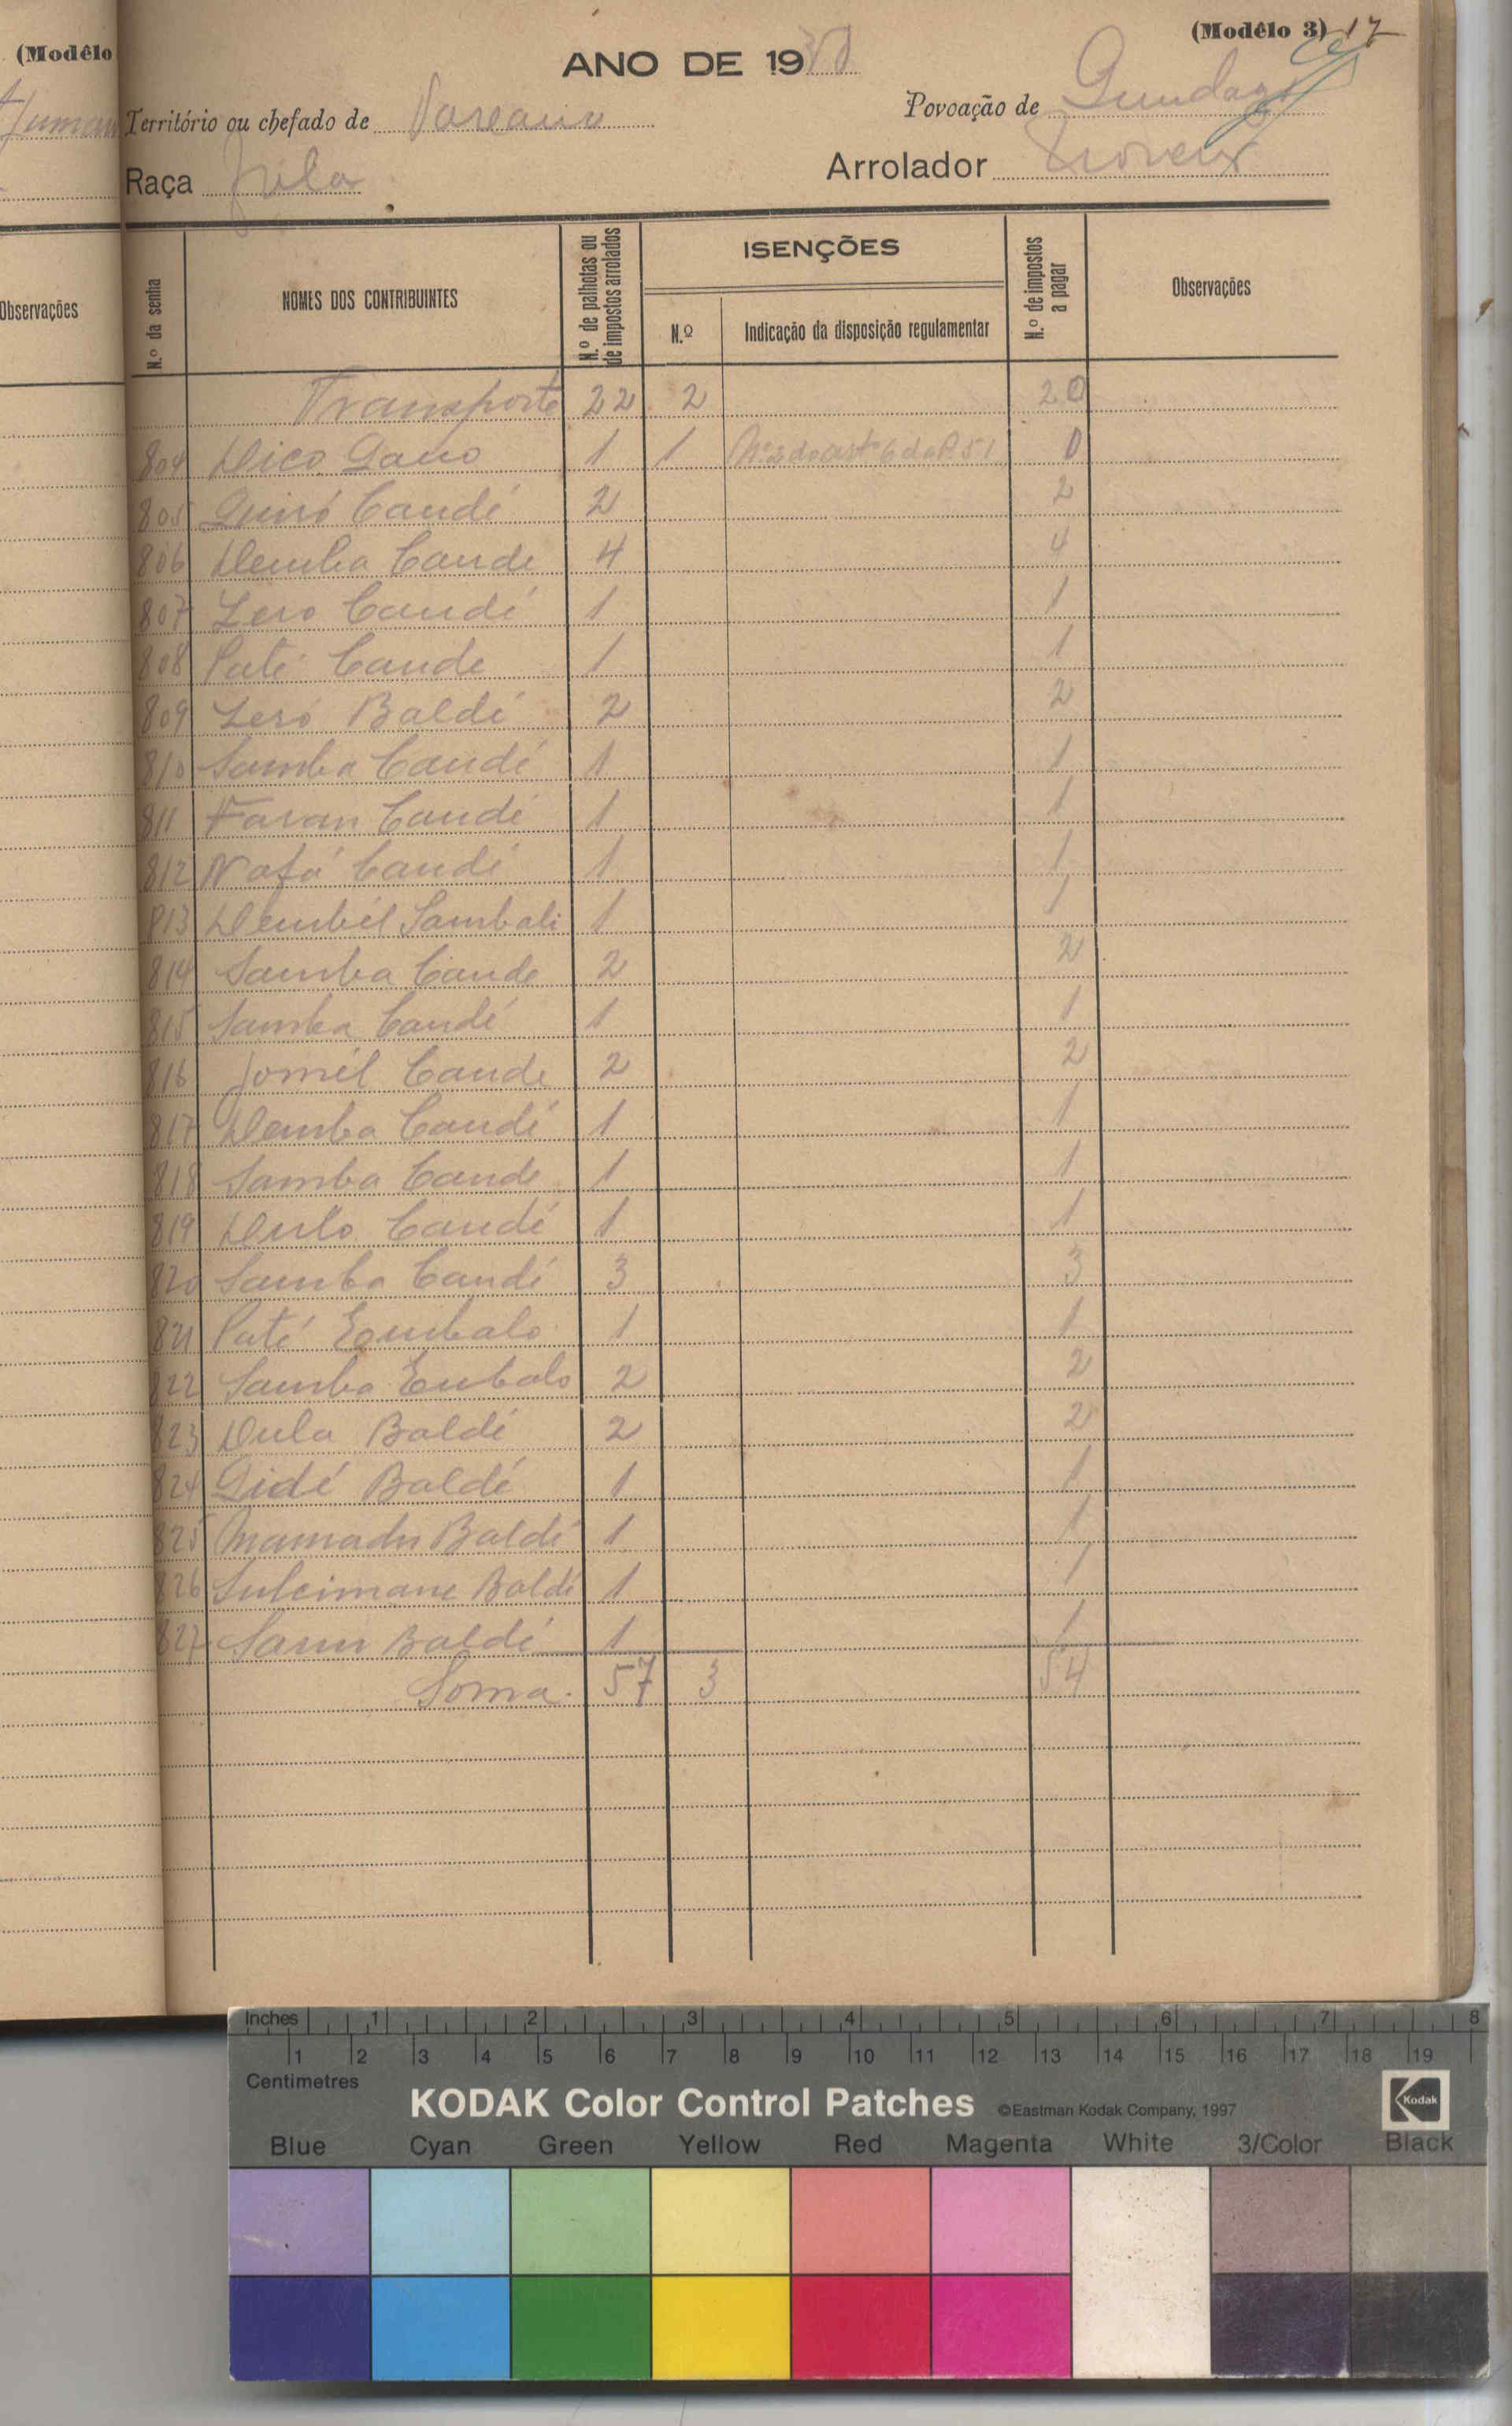 (Modêlo
(Modêlo 3) 17
ANO DE 19
Território ou chefado de
Povoação de
Raça
Arrolador
Observações
N.º da senha
NOMES DOS CONTRIBUINTES
N.º de palhotas ou de impostos arrolados
ISENÇÕES
N.º
Indicação da disposição regulamentar
N.º de impostos a pagar
Observações
Transporte 22 2 20
804 Dico 1 1 0
805 Candé 2 2
806 Demba Cande 4 4
807 Candé 1 1
808 Paté Cande 1 1
809 Baldé 2 2
810 Samba Candé 1 1
811 Faran Candé 1 1
812 Nafá Candé 1 1
813 Dembél Sambali 1 1
814 Samba Cande 2 2
815 Samba Candé 1 1
816 Jomél Cande 2 2
817 Demba Candé 1 1
818 Samba Cande 1 1
819 Candé 1 1
820 Samba Candé 3 3
821 Paté Embalo 1 1
822 Samba Embalo 2 2
823 Dula Baldé 2 2
824 Gidé Baldé 1 1
825 Mamadu Baldé 1 1
826 Suleimane Baldé 1 1
827 Baldé 1 1
Soma 57 3 54
Inches 1 2 3 4 5 6 7 8
1 2 3 4 5 6 7 8 9 10 11 12 13 14 15 16 17 18 19
Centimetres
KODAK Color Control Patches ©Eastman Kodak Company, 1997 Kodak
Blue Cyan Green Yellow Red Magenta White 3/Color Black